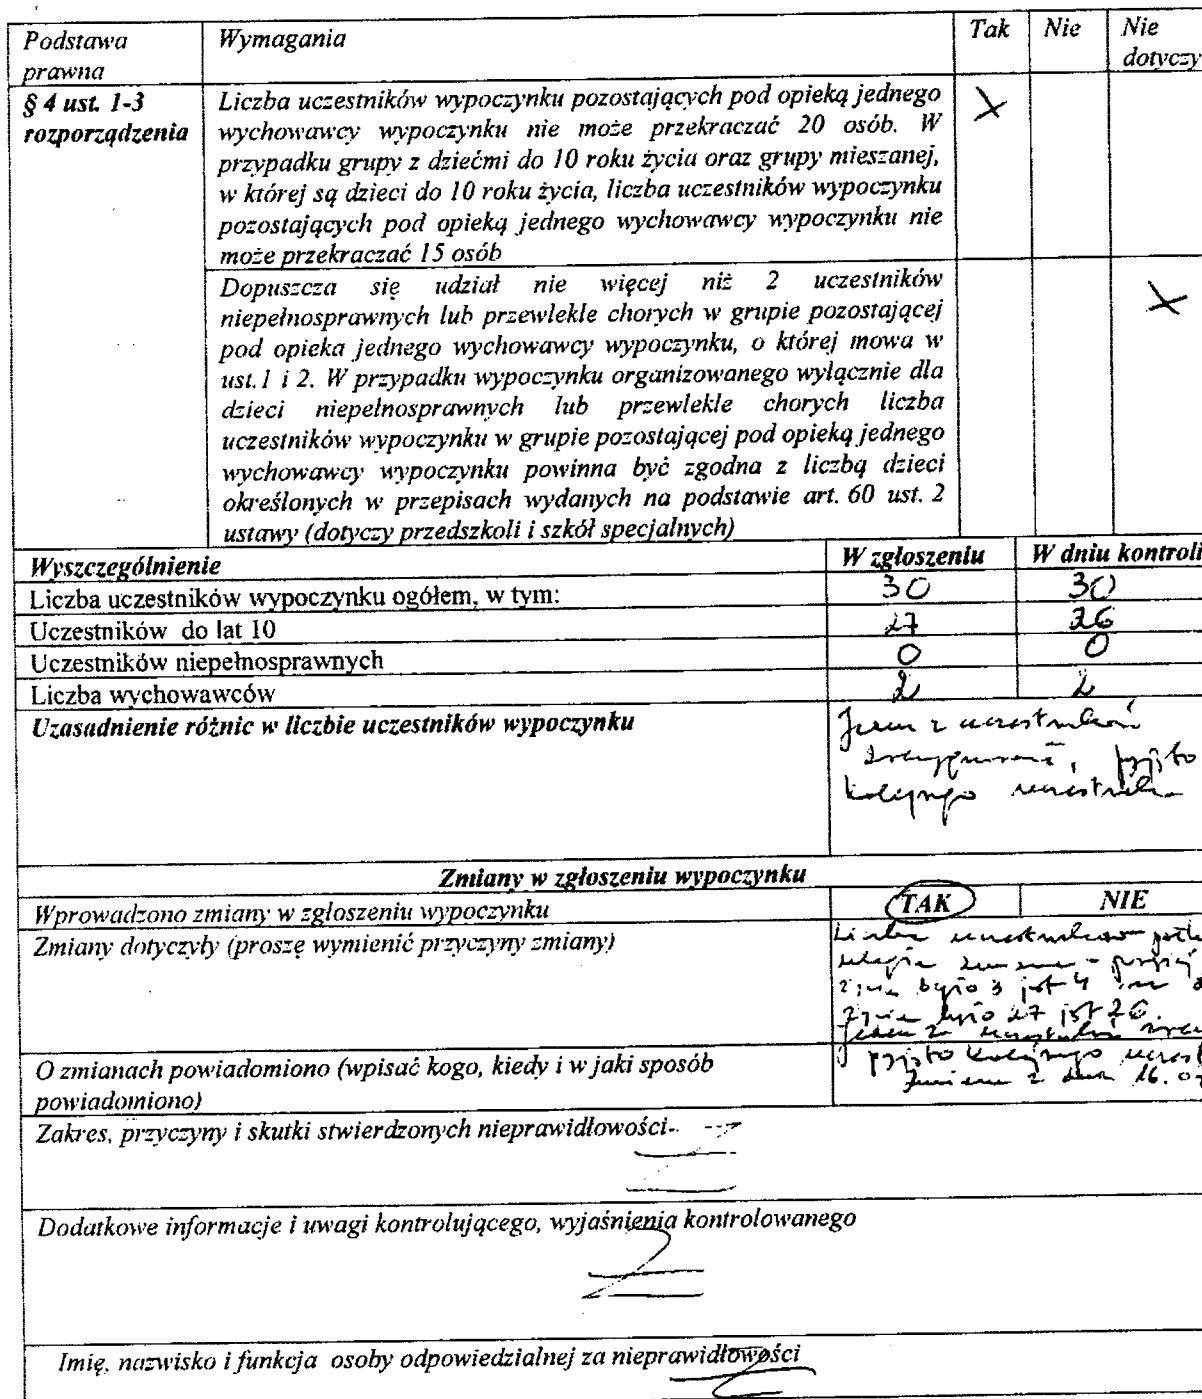 Podstawa prawna Wymagania Tak Nie Nie dotyczy
§ 4 ust. 1-3 rozporządzenia
Liczba uczestników wypoczynku pozostających pod opieką jednego
wychowawcy wypoczynku nie może przekraczać 20 osób. W
przypadku grupy z dziećmi do 10 roku życia oraz grupy mieszanej,
w której są dzieci do 10 roku życia, liczba uczestników wypoczynku
pozostających pod opieką jednego wychowawcy wypoczynku nie
może przekraczać 15 osób
X
Dopuszcza się udział nie więcej niż 2 uczestników
niepełnosprawnych lub przewlekle chorych w grupie pozostającej
pod opieka jednego wychowawcy wypoczynku, o której mowa w
ust.1 i 2. W przypadku wypoczynku organizowanego wyłącznie dla
dzieci niepełnosprawnych lub przewlekle chorych liczba
uczestników wypoczynku w grupie pozostającej pod opieką jednego
wychowawcy wypoczynku powinna być zgodna z liczbą dzieci
określonych w przepisach wydanych na podstawie art. 60 ust. 2
ustawy (dotyczy przedszkoli i szkół specjalnych)
X
Wyszczególnienie W zgłoszeniu W dniu kontroli
Liczba uczestników wypoczynku ogółem, w tym: 30 30
Uczestników do lat 10 27 26
Uczestników niepełnosprawnych 0 0
Liczba wychowawców 2 2
Uzasadnienie różnic w liczbie uczestników wypoczynku
z uczestników
kolejnego uczestnika
Zmiany w zgłoszeniu wypoczynku
Wprowadzono zmiany w zgłoszeniu wypoczynku TAK NIE
Zmiany dotyczyły (proszę wymienić przyczyny zmiany)
Liczba uczestników
było 3 jest 4
było 27 jest 26.
O zmianach powiadomiono (wpisać kogo, kiedy i w jaki sposób
powiadomiono)
kolejnego
z dnia 16.
Zakres, przyczyny i skutki stwierdzonych nieprawidłowości
Dodatkowe informacje i uwagi kontrolującego, wyjaśnienia kontrolowanego
Imię, nazwisko i funkcja osoby odpowiedzialnej za nieprawidłowości